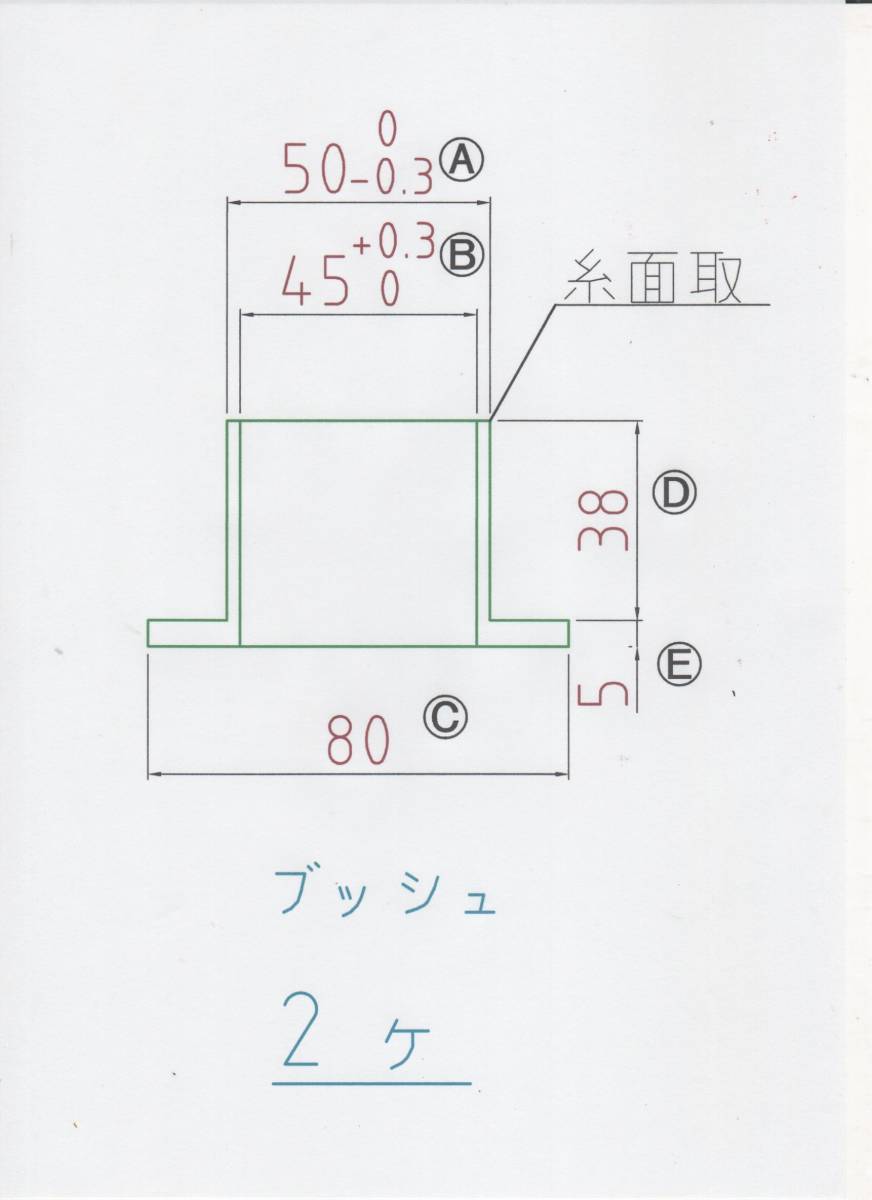 0
50-0.3 Ⓐ
+0.3
45 Ⓑ
0
糸面取
38 Ⓓ
5 Ⓔ
80 Ⓒ
ブッシュ
2ヶ